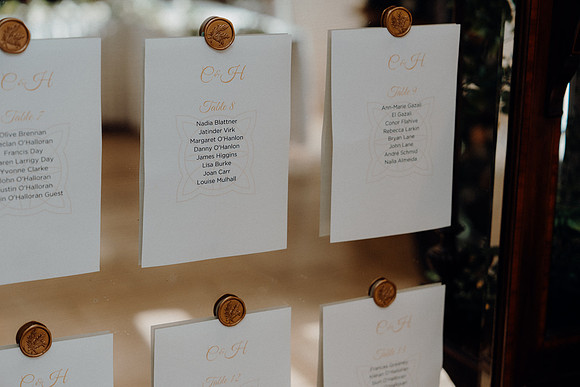 C & H
Table 7
Olive Brennan
Declan O'Halloran
Francis Day
Karen Larrigy Day
Yvonne Clarke
John O'Halloran
Justin O'Halloran
O'Halloran Guest
C & H
Table 8
Nadia Blattner
Jatinder Virk
Margaret O'Hanlon
Danny O'Hanlon
James Higgins
Lisa Burke
Joan Carr
Louise Mulhall
C & H
Table 9
Ann-Marie Gazali
El Gazali
Conor Flahive
Rebecca Larkin
Bryan Lane
John Lane
André Schmid
Naila Almeida
C & H
C & H
Table 12
C & H
Table